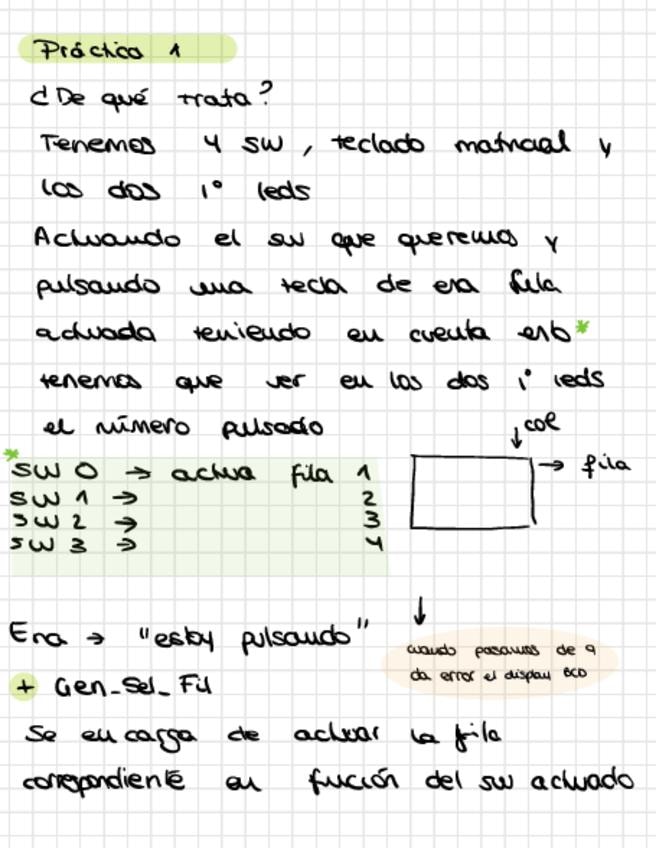 Práctica 1
¿De qué trata?
Tenemos 4 SW, teclado matricial y
los dos 1º leds
Activando el sw que queremos y
pulsando una tecla de esa fila
activada teniendo en cuenta esto*
tenemos que ver en los dos 1º leds
el número pulsado
↓ col
→ fila
*
SW 0 → activa fila 1
SW 1 → 2
SW 2 → 3
SW 3 → 4
↓
Ena → "estoy pulsando"
cuando pasamos de 9
da error el display BCD
+ Gen_Sel_Fil
Se encarga de activar la fila
correspondiente en función del sw activado